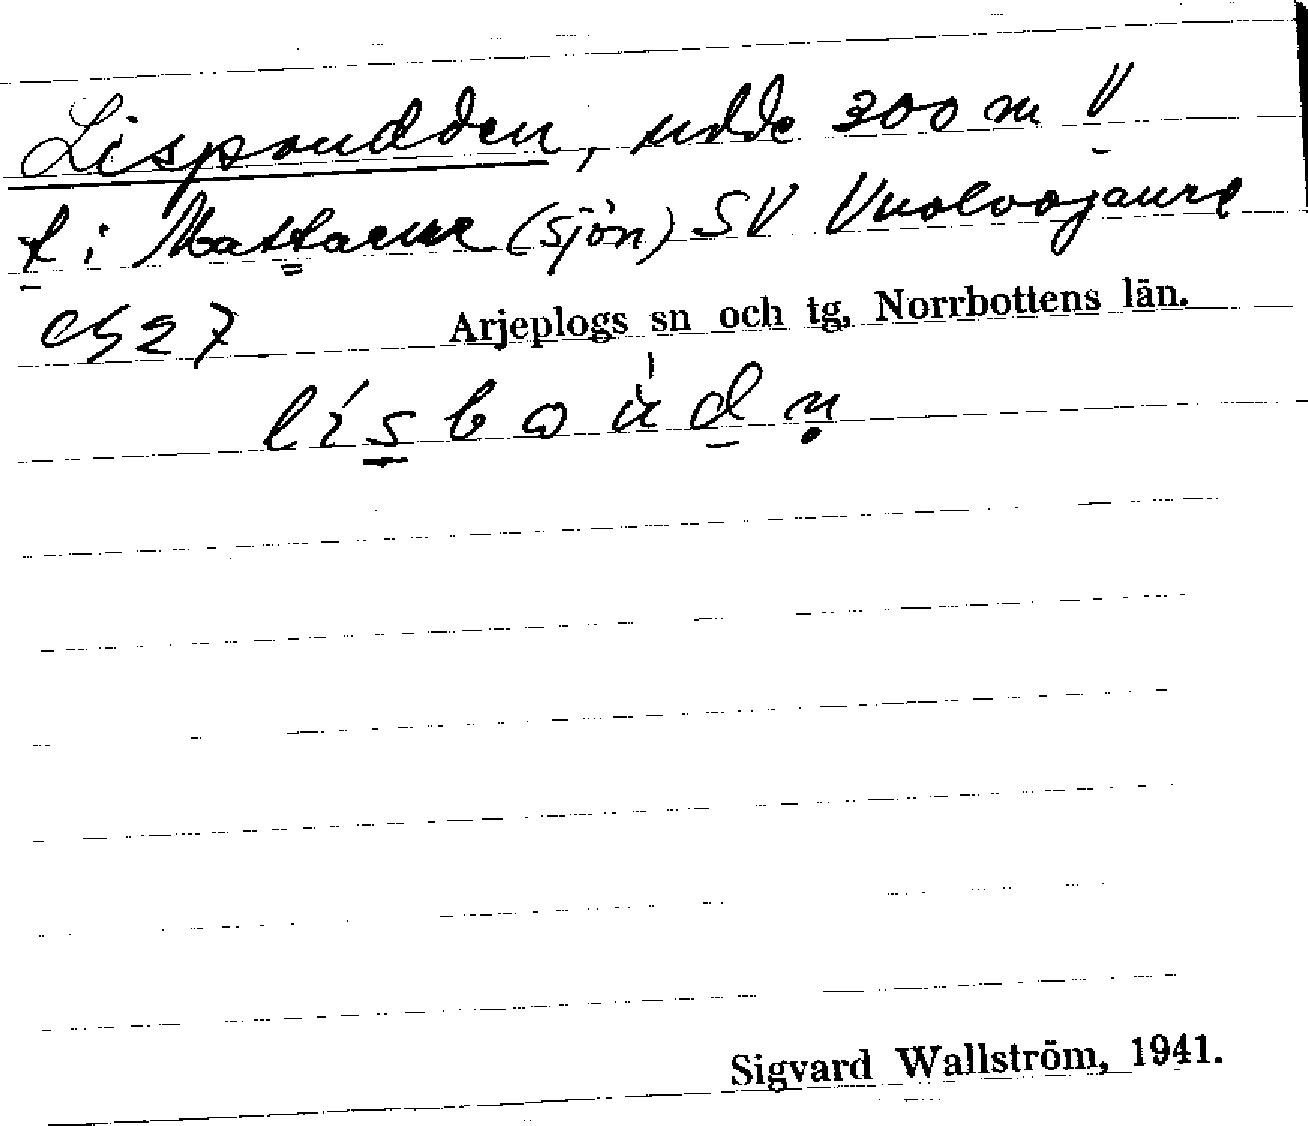 Lispoudden, udde 300 m V
t i Mattaure (sjön) SV Vuolvojaure
Arjeplogs sn och tg, Norrbottens län.
lisboudn
Sigvard Wallström, 1941.